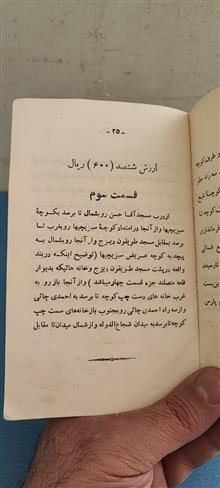 - ۲۵ -
ارزش ششصد (۶۰۰) ریال
قسمت سوم
ازدرب مسجد آقا حسن روبشمال تا برسد بکوچهٔ
سبزیچیها و از آنجا در امتداد کوچهٔ سبزیچیها روبغرب تا
برسد بمقابل مسجد طریقون دیزج و از آنجا روبشمال به
پیچد به کوچه عریض سبزیچیها (توضیح اینکه دربند
واقعه درپشت مسجد طریقون دیزج وخانه هائیکه بدیوار
قلعه متصلند جزء قسمت چهارمیباشد) و از آنجا باز رو به
غرب خانه های دست چپ کوچه تا برسد به احمدی چائی
و از سه راه احمدی چائی روبجنوب بازخانه‌های سمت چپ
کوچه تا برسد به میدان شجاع الدوله و از شمال میدان تا مقابل